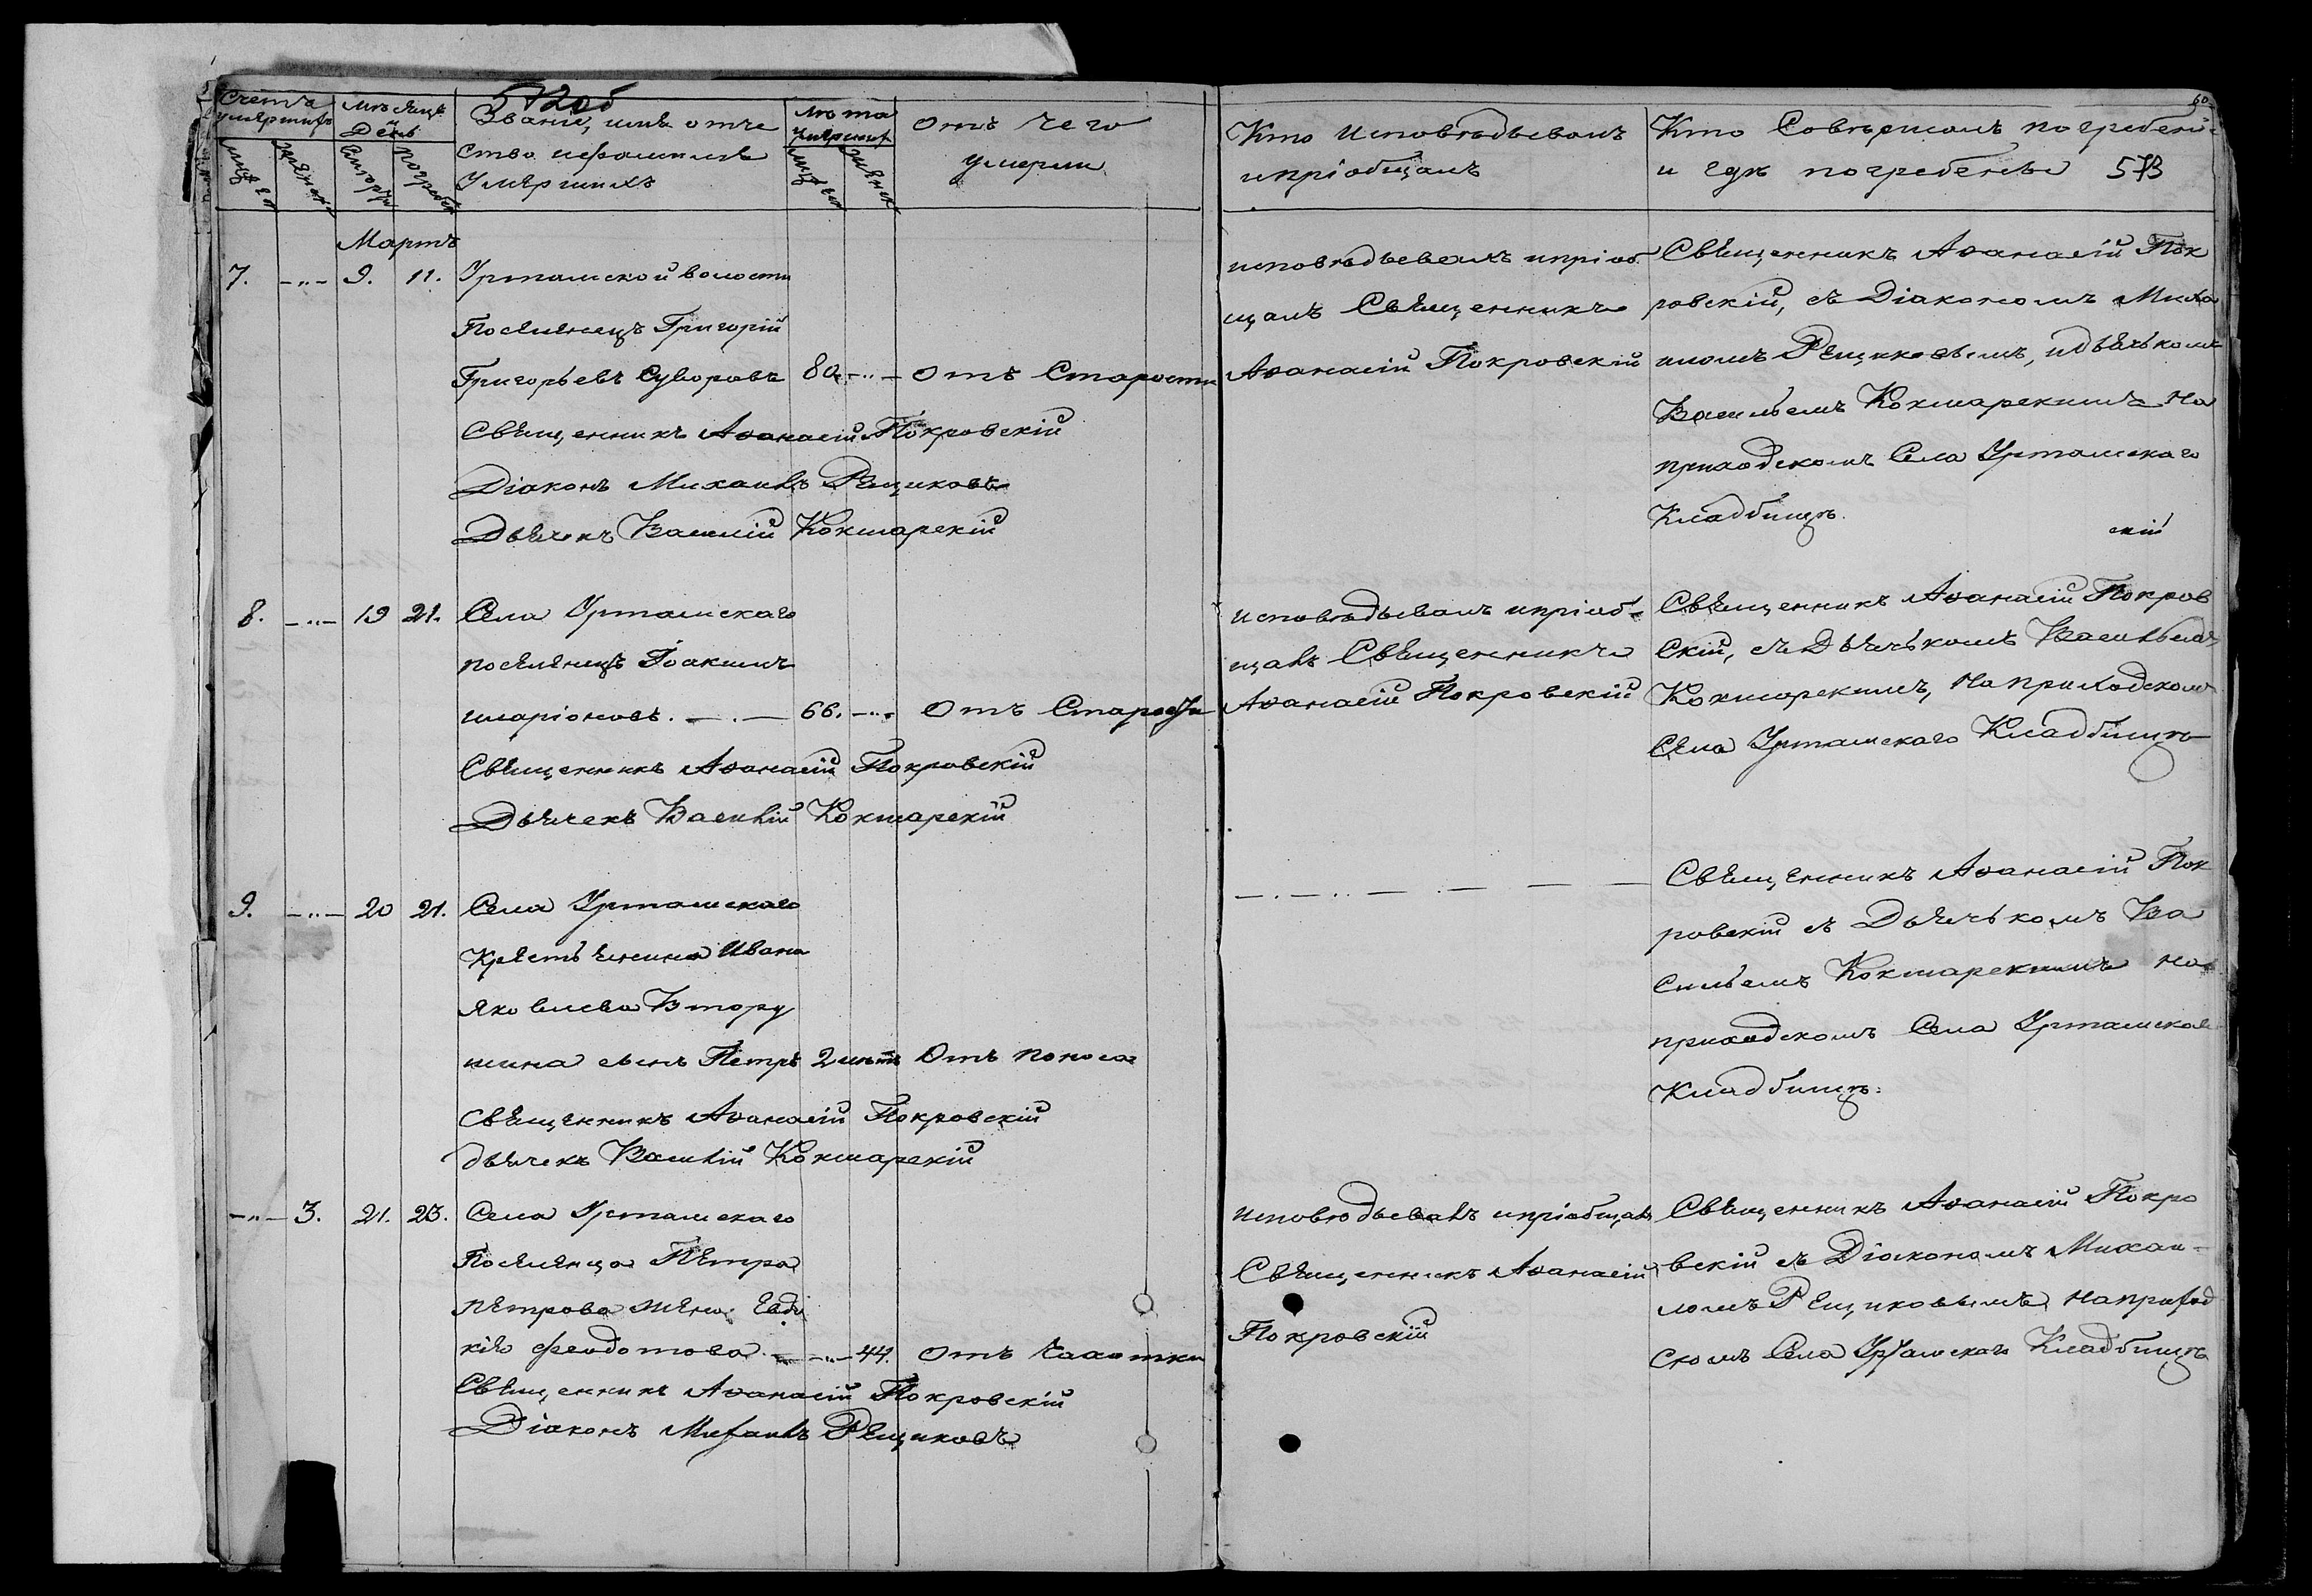 572об
Счетъ умершихъ
Мѣсяцъ и День
Званіе, имя отче
ство ифамилія
Умершихъ
Лѣта умершихъ
Отъ чего
умерли
Кто Исповѣдывалъ
ипріобщалъ
Кто Совершалъ погребені
и гдѣ погребены 573
60
мужеск
женск
Смерти
погребен
мужеск
женск
Мартъ
7. -"- 9. 11. Уртамской волости
Поселенецъ Григорій
Григорьевъ Суворовъ 80. -"- Отъ Старости
Священникъ Аѳанасій Покровскій
Діаконъ Михаилъ Рещиковъ
Дьячекъ Василій Кокшарскій
исповѣдывалъ ипріоб
щалъ Священникъ
Аѳанасій Покровскій
Священникъ Аѳанасій Пок
ровскій, съ Діакономъ Миха
иломъ Рещиковымъ, идьячькомъ
Васильемъ Кокшарскимъ На
приходскомъ Села Уртамскаго
Кладбищѣ.
скій
8. -"- 19 21. Села Уртамскаго
поселенецъ Іоакимъ
иларіоновъ. 66. -"- Отъ Старости
Священникъ Аѳанасій Покровскій
Дьячекъ Василій Кокшарскій
исповѣдывалъ ипріоб-
щалъ Священникъ
Аѳанасій Покровскій
Священникъ Аѳанасій Покров
Скій, съ Дьячькомъ Васильемъ
Кокшарскимъ, На приходскомъ
Села Уртамскаго Кладбищѣ
9. -"- 20 21. Села Уртамскаго
Крестьянина Ивана
Яковлева Втору
шина сынъ Петръ 2 лѣтъ Отъ поноса
Священникъ Аѳанасій Покровскій
дьячекъ Василій Кокшарскій
Священникъ Аѳанасій Пок
ровскій съ Дьячькомъ Ва
сильемъ Кокшарскимъ на
приходскомъ Села Уртамскаго
Кладбищѣ.
-"- 3. 21. 23. Села Уртамскаго
Поселенца Петра
Петрова жена Евдо
кія Феодотова -"- 44. Отъ Чахотки
Священникъ Аѳанасій Покровскій
Діаконъ Михаилъ Рещиковъ
исповѣдывалъ ипріобщалъ
Священникъ Аѳанасій
Покровскій
Священникъ Аѳанасій Покро
вскій съ Діакономъ Михаи-
ломъ Рещиковымъ на приход
скомъ Села Уртамскаго Кладбищѣ